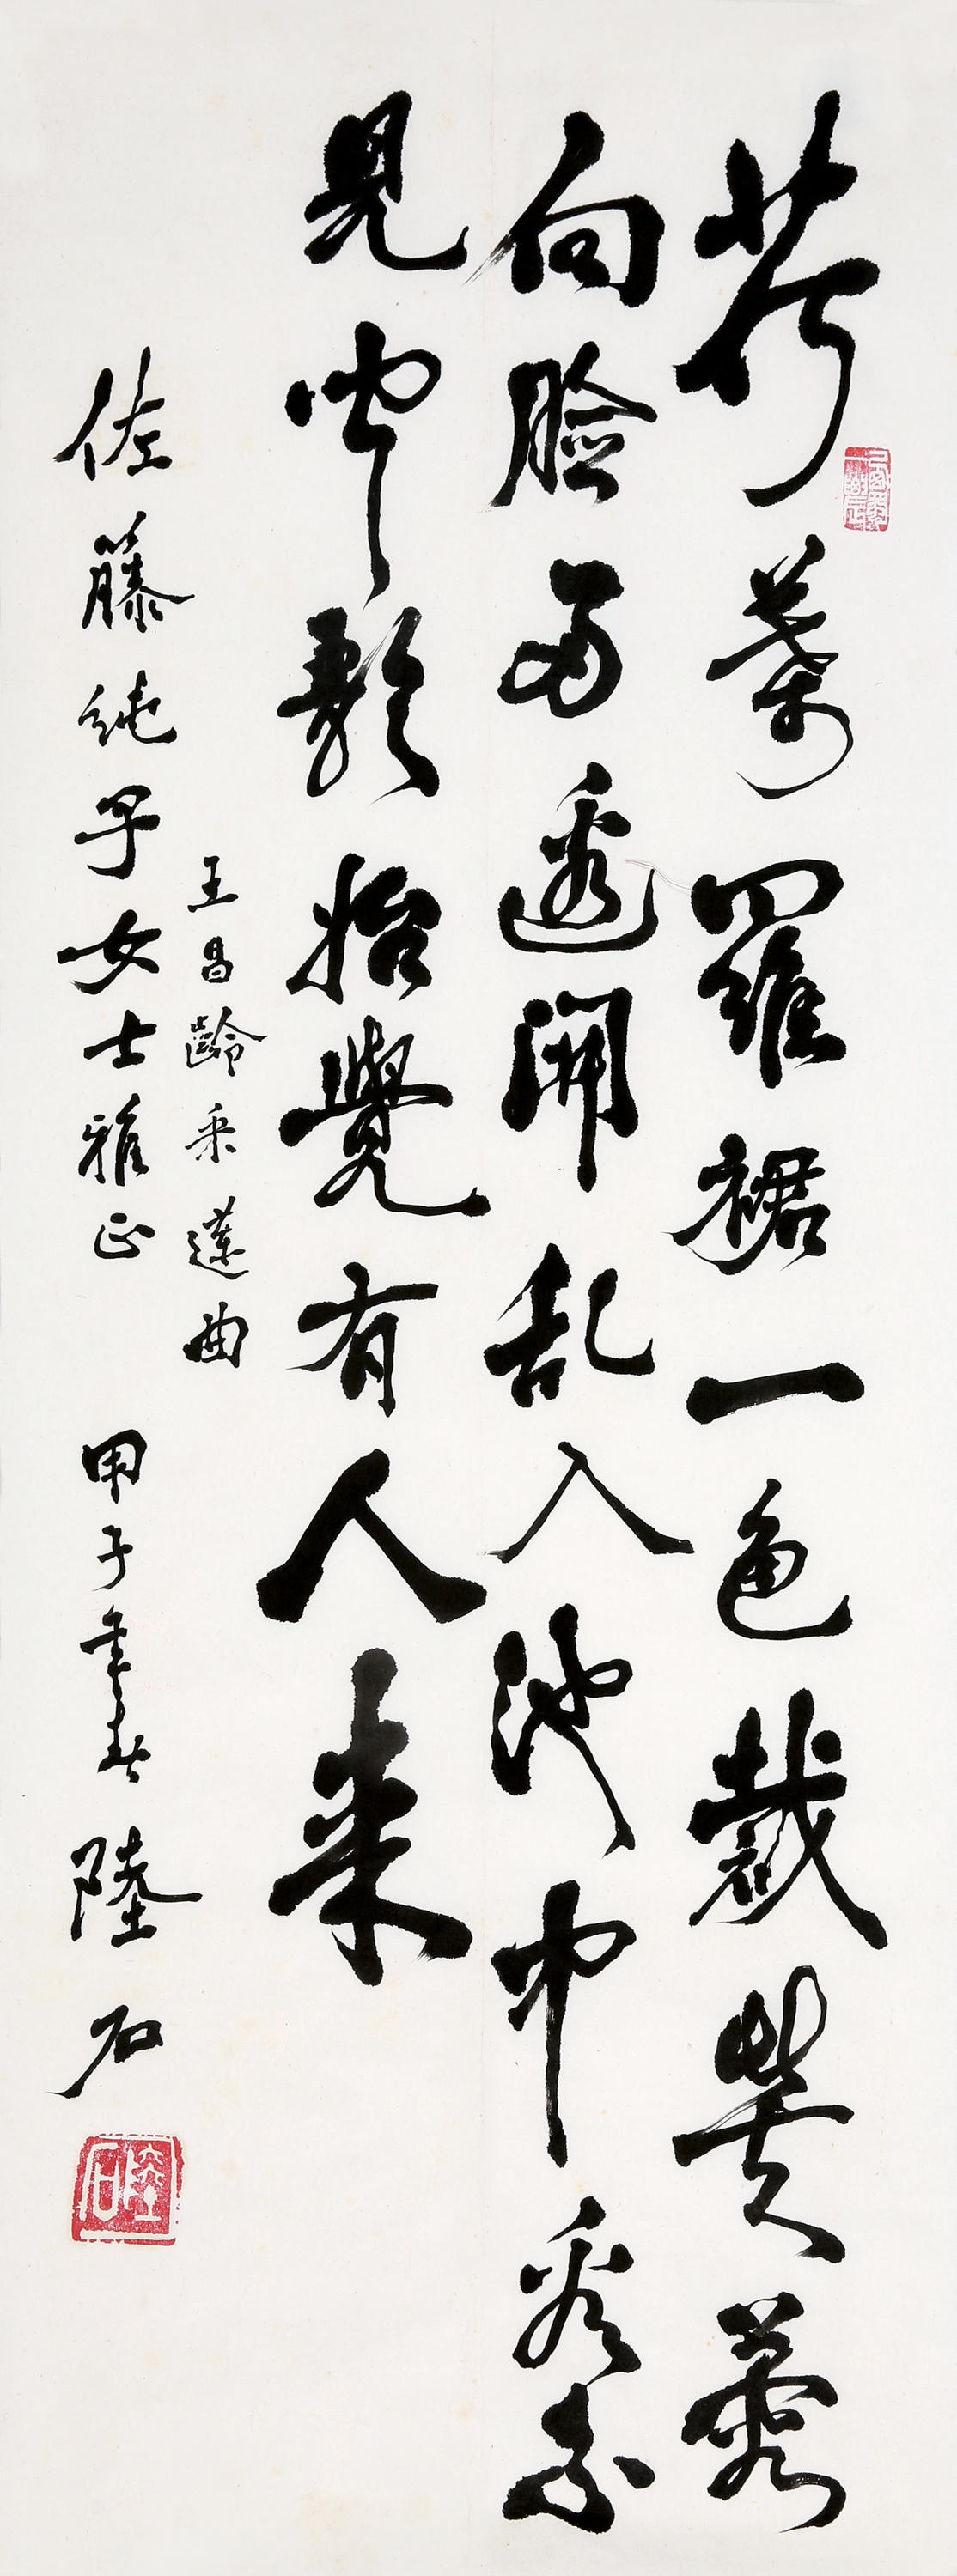 荷葉羅裙一色裁芙蓉
向臉兩邊開乱入池中看不
見聞歌始覺有人来
王昌齡采蓮曲
佐藤純子女士雅正 甲子年春 陸石
陸石